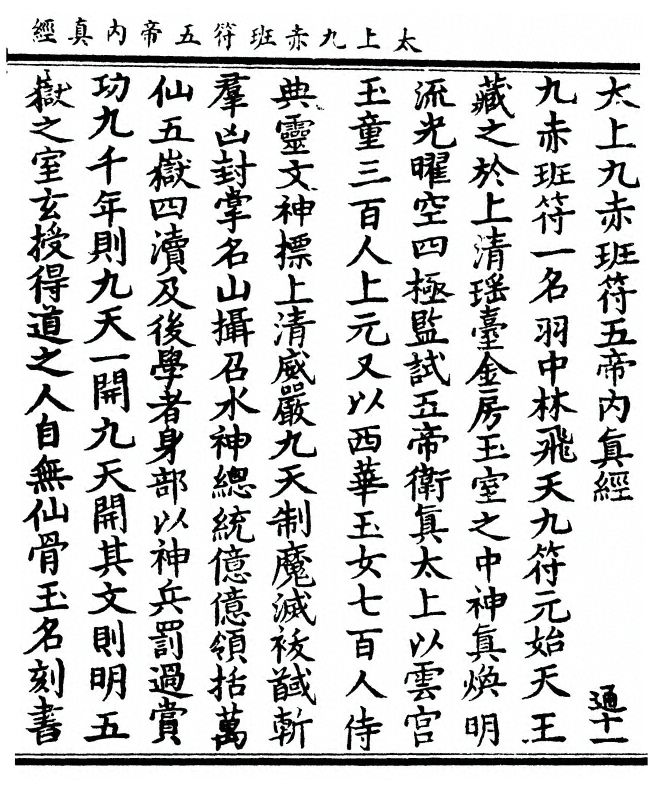 太上九赤班符五帝內真經
太上九赤班符五帝內真經 通十一
九赤班符一名羽中林飛天九符元始天王
藏之於上清瑶臺金房玉室之中神真煥明
流光曜空四極監試五帝衛真太上以雲宮
玉童三百人上元又以西華玉女七百人侍
典靈文神摽上清威嚴九天制魔滅祅馘斬
羣凶封掌名山攝召水神總統億億領括萬
仙五嶽四瀆及後學者身部以神兵罰過賞
功九千年則九天一開九天開其文則明五
嶽之室玄授得道之人自無仙骨玉名刻書